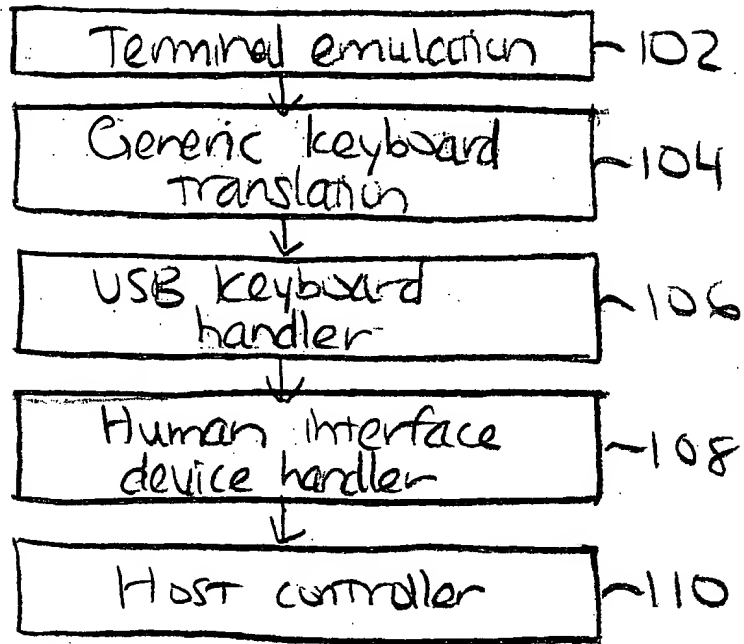 Terminal emulation 102
Generic keyboard 104
translation
USB keyboard 106
handler
Human interface 108
device handler
Host controller 110